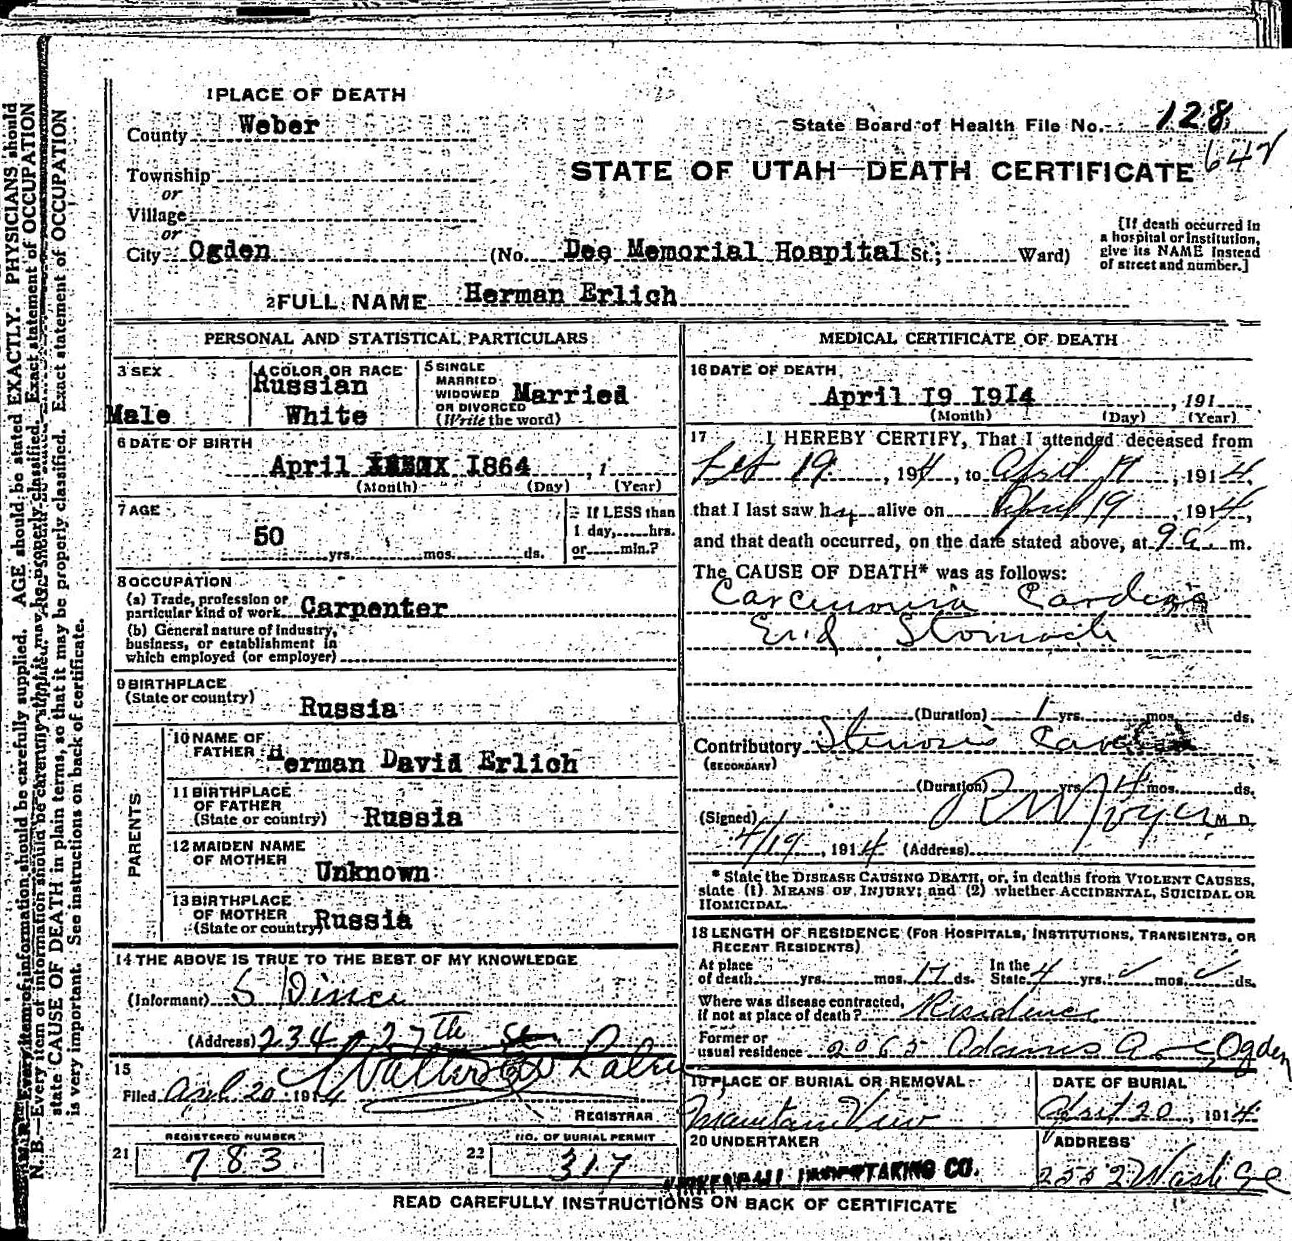 1 PLACE OF DEATH
County Weber
State Board of Health File No. 128
Township
or
STATE OF UTAH—DEATH CERTIFICATE
Village
or
City Ogden (No. Dee Memorial Hospital St.; Ward)
[If death occurred in
a hospital or institution,
give its NAME instead
of street and number.]
2 FULL NAME Herman Erlich
PERSONAL AND STATISTICAL PARTICULARS
3 SEX
Male
4 COLOR OR RACE
Russian
White
5 SINGLE
MARRIED
WIDOWED
OR DIVORCED
(Write the word)
Married
6 DATE OF BIRTH
April I864 , 1
(Month) (Day) (Year)
7 AGE
50 yrs. mos. ds.
If LESS than
1 day, hrs.
or min.?
8 OCCUPATION
(a) Trade, profession or
particular kind of work Carpenter
(b) General nature of industry,
business, or establishment in
which employed (or employer)
9 BIRTHPLACE
(State or country)
Russia
PARENTS
10 NAME OF
FATHER Herman David Erlich
11 BIRTHPLACE
OF FATHER
(State or country) Russia
12 MAIDEN NAME
OF MOTHER
Unknown
13 BIRTHPLACE
OF MOTHER
(State or country) Russia
14 THE ABOVE IS TRUE TO THE BEST OF MY KNOWLEDGE
(Informant) S
(Address) 234 27th St
15
Filed Apr 20 1914
REGISTRAR
REGISTERED NUMBER
21 783
NO. OF BURIAL PERMIT
22 317
MEDICAL CERTIFICATE OF DEATH
16 DATE OF DEATH
April I9 I9I4 , 191
(Month) (Day) (Year)
17 I HEREBY CERTIFY, That I attended deceased from
19 , 191 , to April , 1914,
that I last saw h alive on April 19 , 1914,
and that death occurred, on the date stated above, at 9 a. m.
The CAUSE OF DEATH* was as follows:
Carcinoma Cardiac
End Stomach
(Duration) 1 yrs. mos. ds.
Contributory Stenosis
(SECONDARY)
(Duration) yrs. 4 mos. ds.
(Signed) M. D.
4/19 , 1914 (Address)
* State the DISEASE CAUSING DEATH, or, in deaths from VIOLENT CAUSES,
state (1) MEANS OF INJURY; and (2) whether ACCIDENTAL, SUICIDAL OR
HOMICIDAL.
18 LENGTH OF RESIDENCE (FOR HOSPITALS, INSTITUTIONS, TRANSIENTS, OR
RECENT RESIDENTS)
At place
of death yrs. mos. 17 ds.
In the
State 4 yrs. mos. ds.
Where was disease contracted,
if not at place of death? Residence
Former or
usual residence 2065 Adams Ave Ogden
19 PLACE OF BURIAL OR REMOVAL
Mountain View
DATE OF BURIAL
April 20, 1914
20 UNDERTAKER
UNDERTAKING CO.
ADDRESS
2552 Wash Ave
READ CAREFULLY INSTRUCTIONS ON BACK OF CERTIFICATE
N. B.—Every item of information should be carefully supplied. AGE should be stated EXACTLY. PHYSICIANS should
state CAUSE OF DEATH in plain terms, so that it may be properly classified. Exact statement of OCCUPATION
is very important. See instructions on back of certificate.